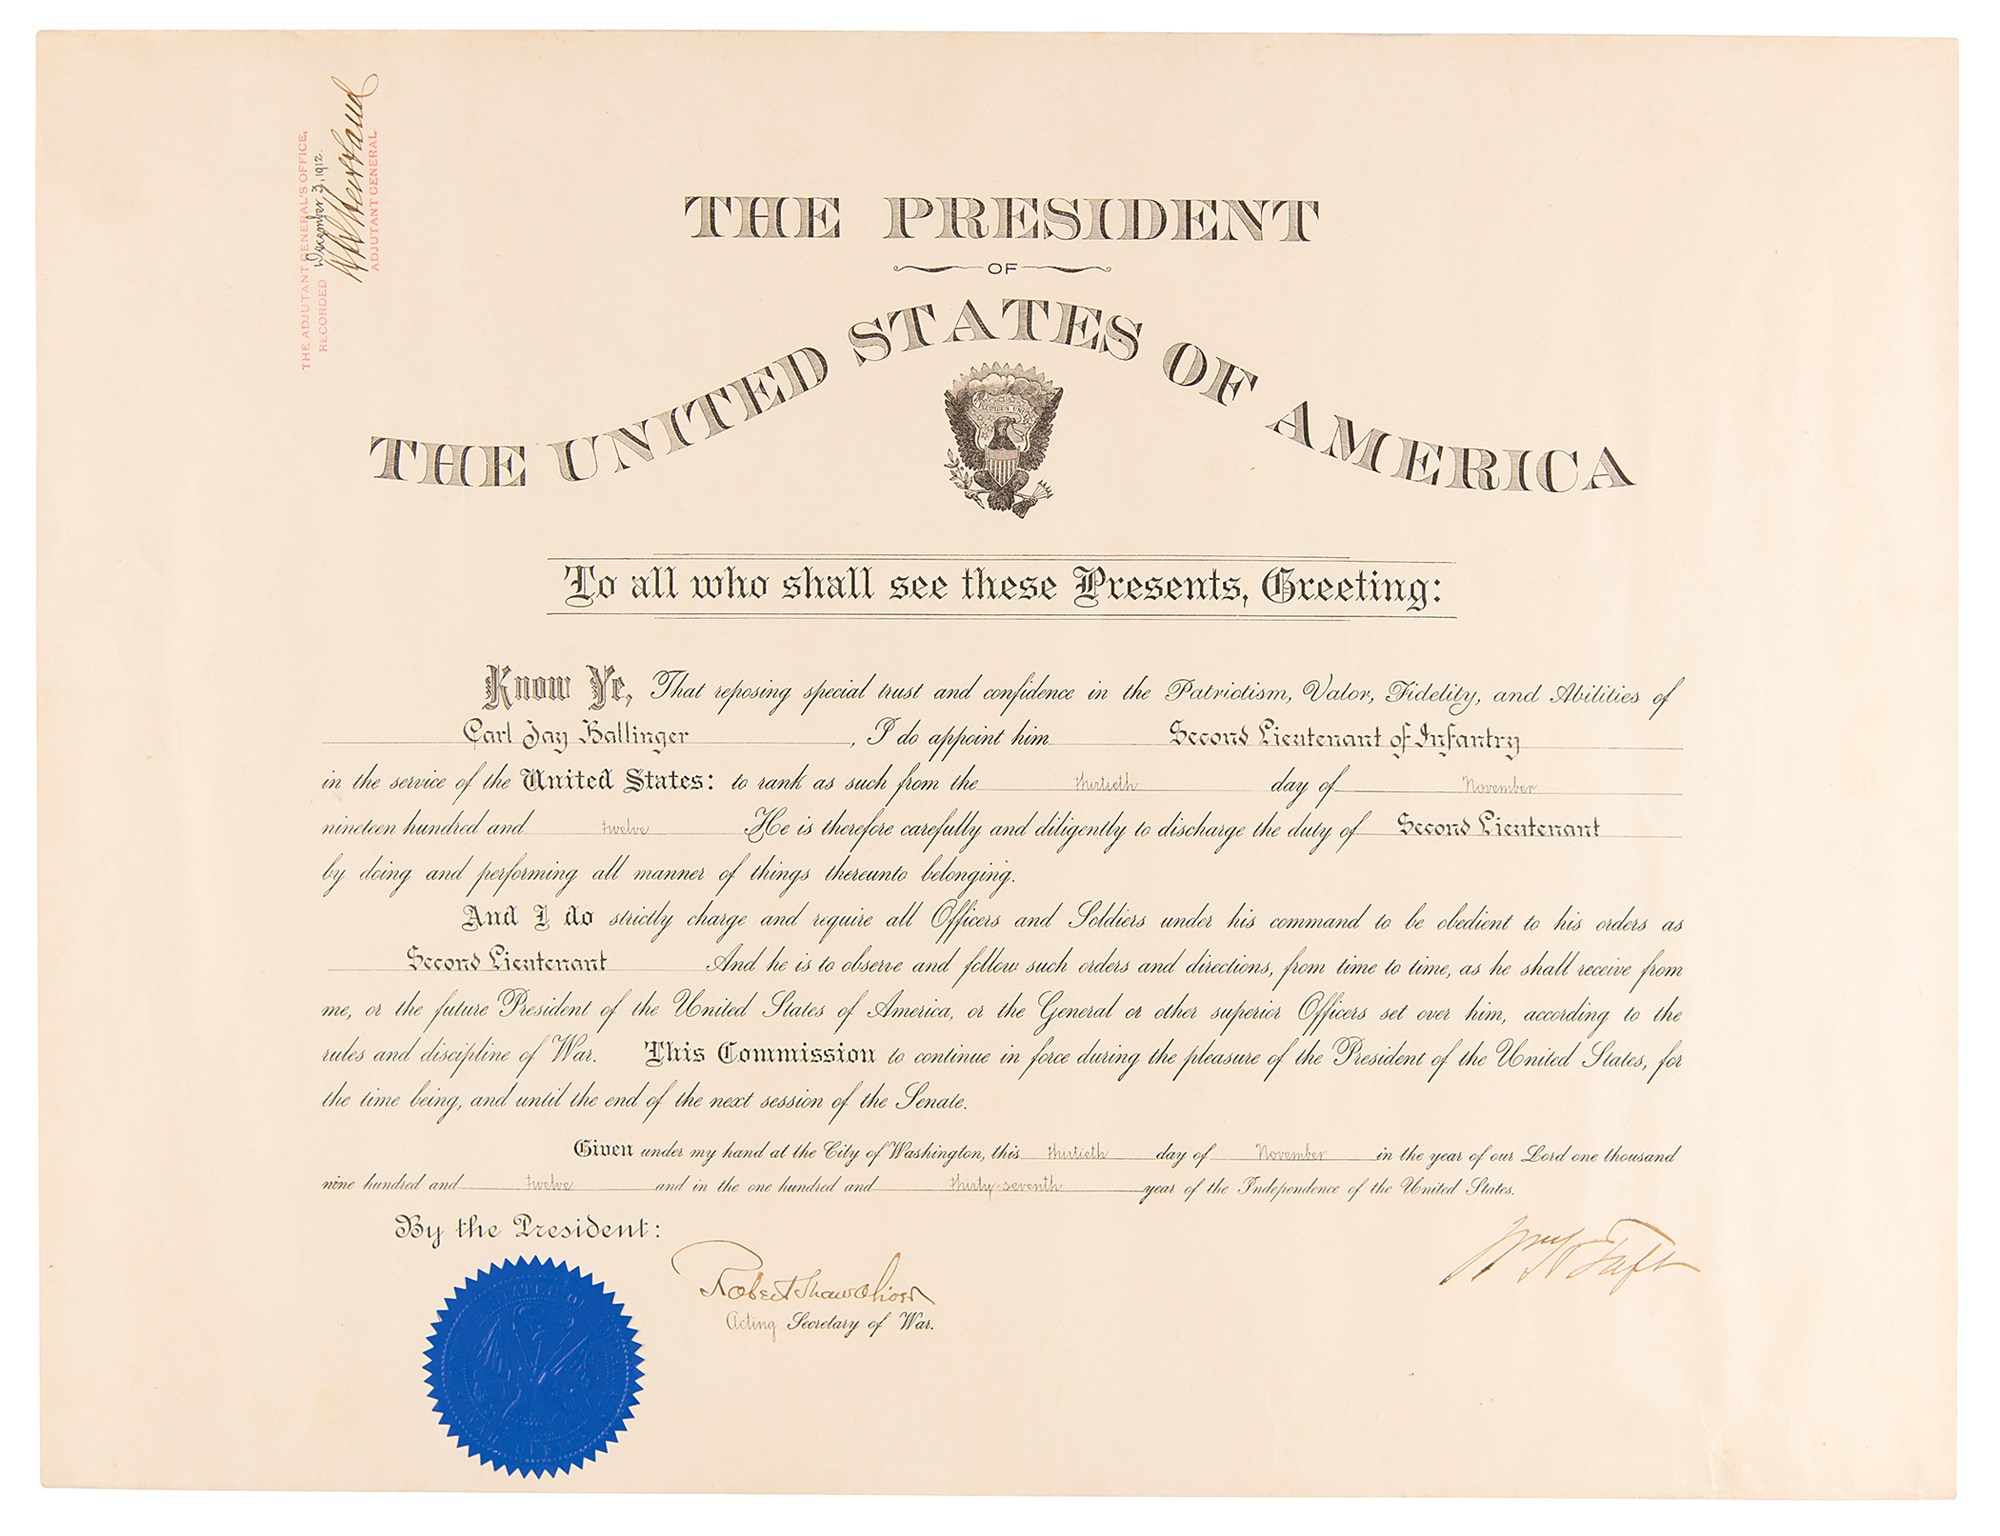 THE ADJUTANT GENERAL'S OFFICE,
RECORDED December 3, 1912.
ADJUTANT GENERAL.
THE PRESIDENT
OF
THE UNITED STATES OF AMERICA
To all who shall see these Presents, Greeting:
Know Ye, That reposing special trust and confidence in the Patriotism, Valor, Fidelity, and Abilities of
Carl Jay Ballinger, I do appoint him Second Lieutenant of Infantry
in the service of the United States: to rank as such from the thirtieth day of November
nineteen hundred and twelve He is therefore carefully and diligently to discharge the duty of Second Lieutenant
by doing and performing all manner of things thereunto belonging.
And I do strictly charge and require all Officers and Soldiers under his command to be obedient to his orders as
Second Lieutenant And he is to observe and follow such orders and directions, from time to time, as he shall receive from
me, or the future President of the United States of America, or the General or other superior Officers set over him, according to the
rules and discipline of War. This Commission to continue in force during the pleasure of the President of the United States, for
the time being, and until the end of the next session of the Senate.
Given under my hand at the City of Washington, this thirtieth day of November in the year of our Lord one thousand
nine hundred and twelve and in the one hundred and thirty-seventh year of the Independence of the United States.
By the President:
Wm H Taft
Robert Shaw Oliver
Acting Secretary of War.